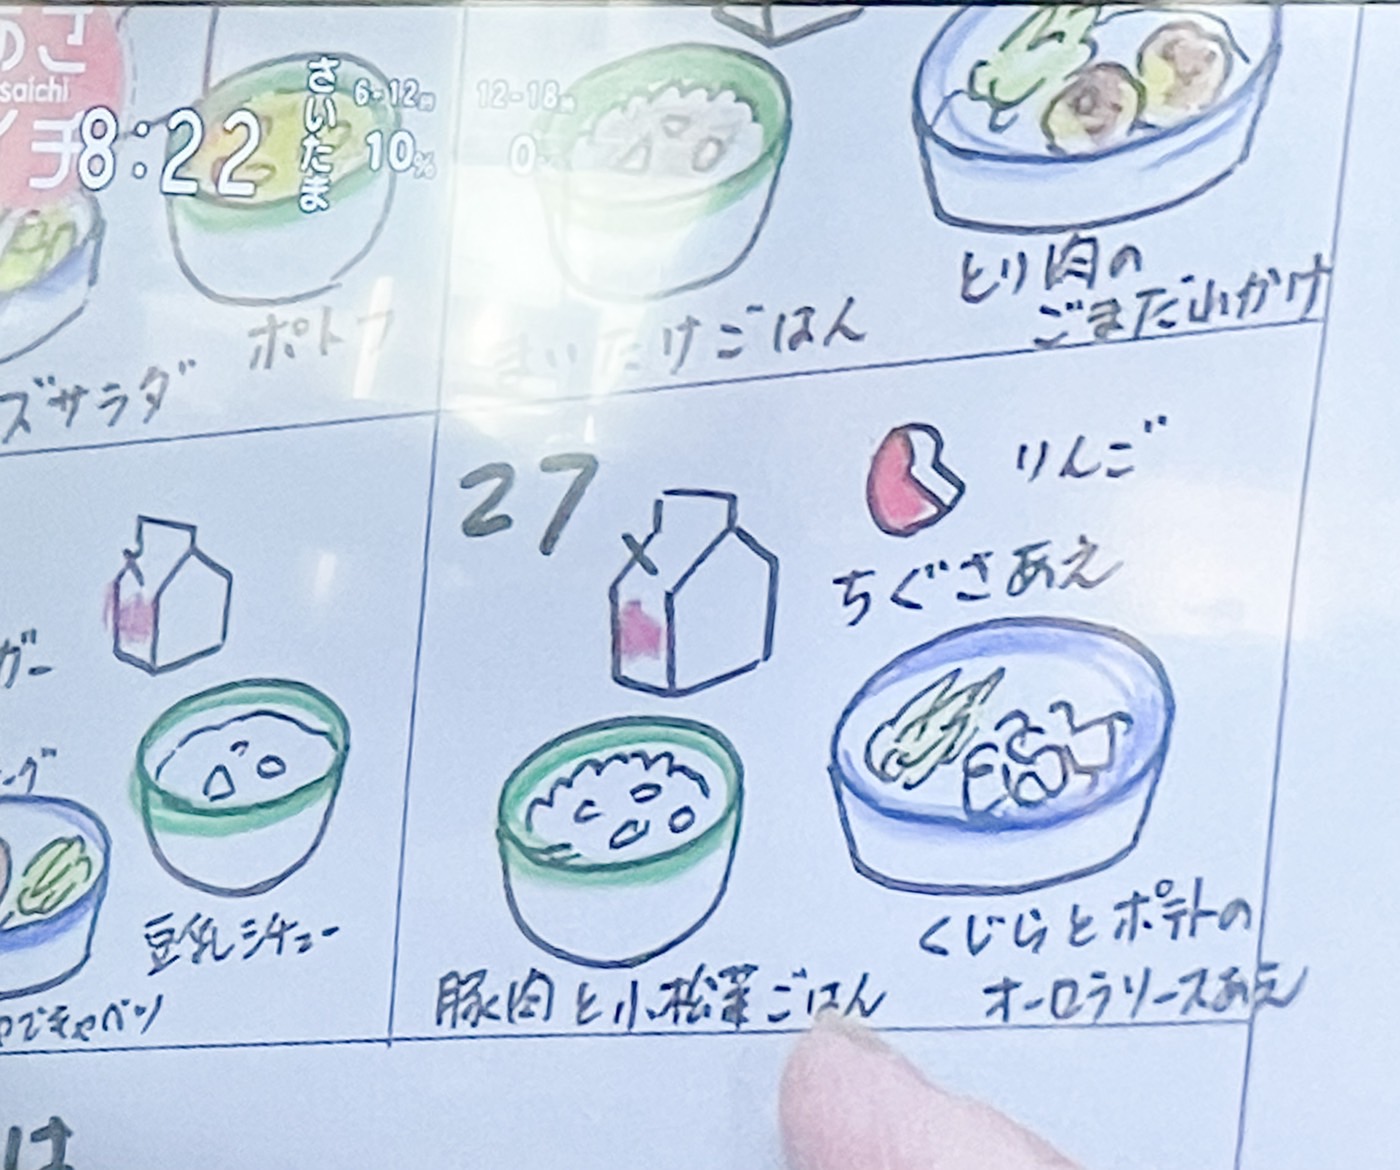 あさ
saichi
イチ
8:22
さいたま
6-12
10%
12-18
0
ポトフ
ズサラダ
まいたけごはん
とり肉の
ごまだれかけ
ガー
豆乳シチュー
ゆでキャベツ
27
りんご
ちぐさあえ
豚肉と小松菜ごはん
くじらとポテトの
オーロラソースあえ
は